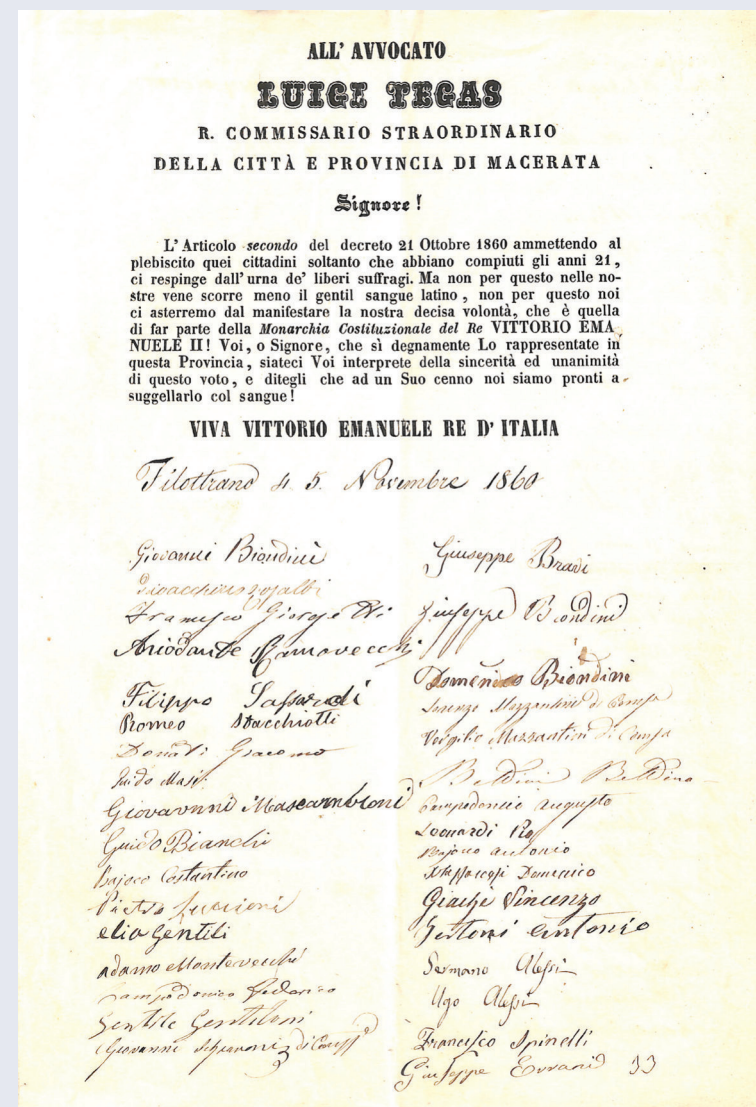 ALL' AVVOCATO
LUIGI TEGAS
R. COMMISSARIO STRAORDINARIO
DELLA CITTÀ E PROVINCIA DI MACERATA
Signore !
L'Articolo secondo del decreto 21 Ottobre 1860 ammettendo al
plebiscito quei cittadini soltanto che abbiano compiuti gli anni 21,
ci respinge dall'urna de' liberi suffragi. Ma non per questo nelle no-
stre vene scorre meno il gentil sangue latino, non per questo noi
ci asterremo dal manifestare la nostra decisa volontà, che è quella
di far parte della Monarchia Costituzionale del Re VITTORIO EMA
NUELE II! Voi, o Signore, che sì degnamente Lo rappresentate in
questa Provincia, siateci Voi interprete della sincerità ed unanimità
di questo voto, e ditegli che ad un Suo cenno noi siamo pronti a
suggellarlo col sangue!
VIVA VITTORIO EMANUELE RE D' ITALIA
Filottrano 5. Novembre 1860
Giovanni Biondini
Francesco Giorgetti
Ariodante
Filippo
Romeo Stacchiotti
Donati Giacomo
Guido Masi
Giovanni Mascambroni
Guido Bianchi
Bajoco Costantino
Pietro
elio Gentili
Adamo Montevecchi
Campodonico Federico
Gentile Gentiloni
Giovanni Schiavoni di
Giuseppe Bravi
Giuseppe Biondini
Domenico Biondini
Lorenzo Mazzantini di
Vergilio Mazzantini di
Beldini Beldino
Campodonico Augusto
Leonardi
Bajoco Antonio
Domenico
Giachè Vincenzo
Antonio
Germano Alessi
Ugo Alessi
Francesco Spinelli
Giuseppe Errani 33